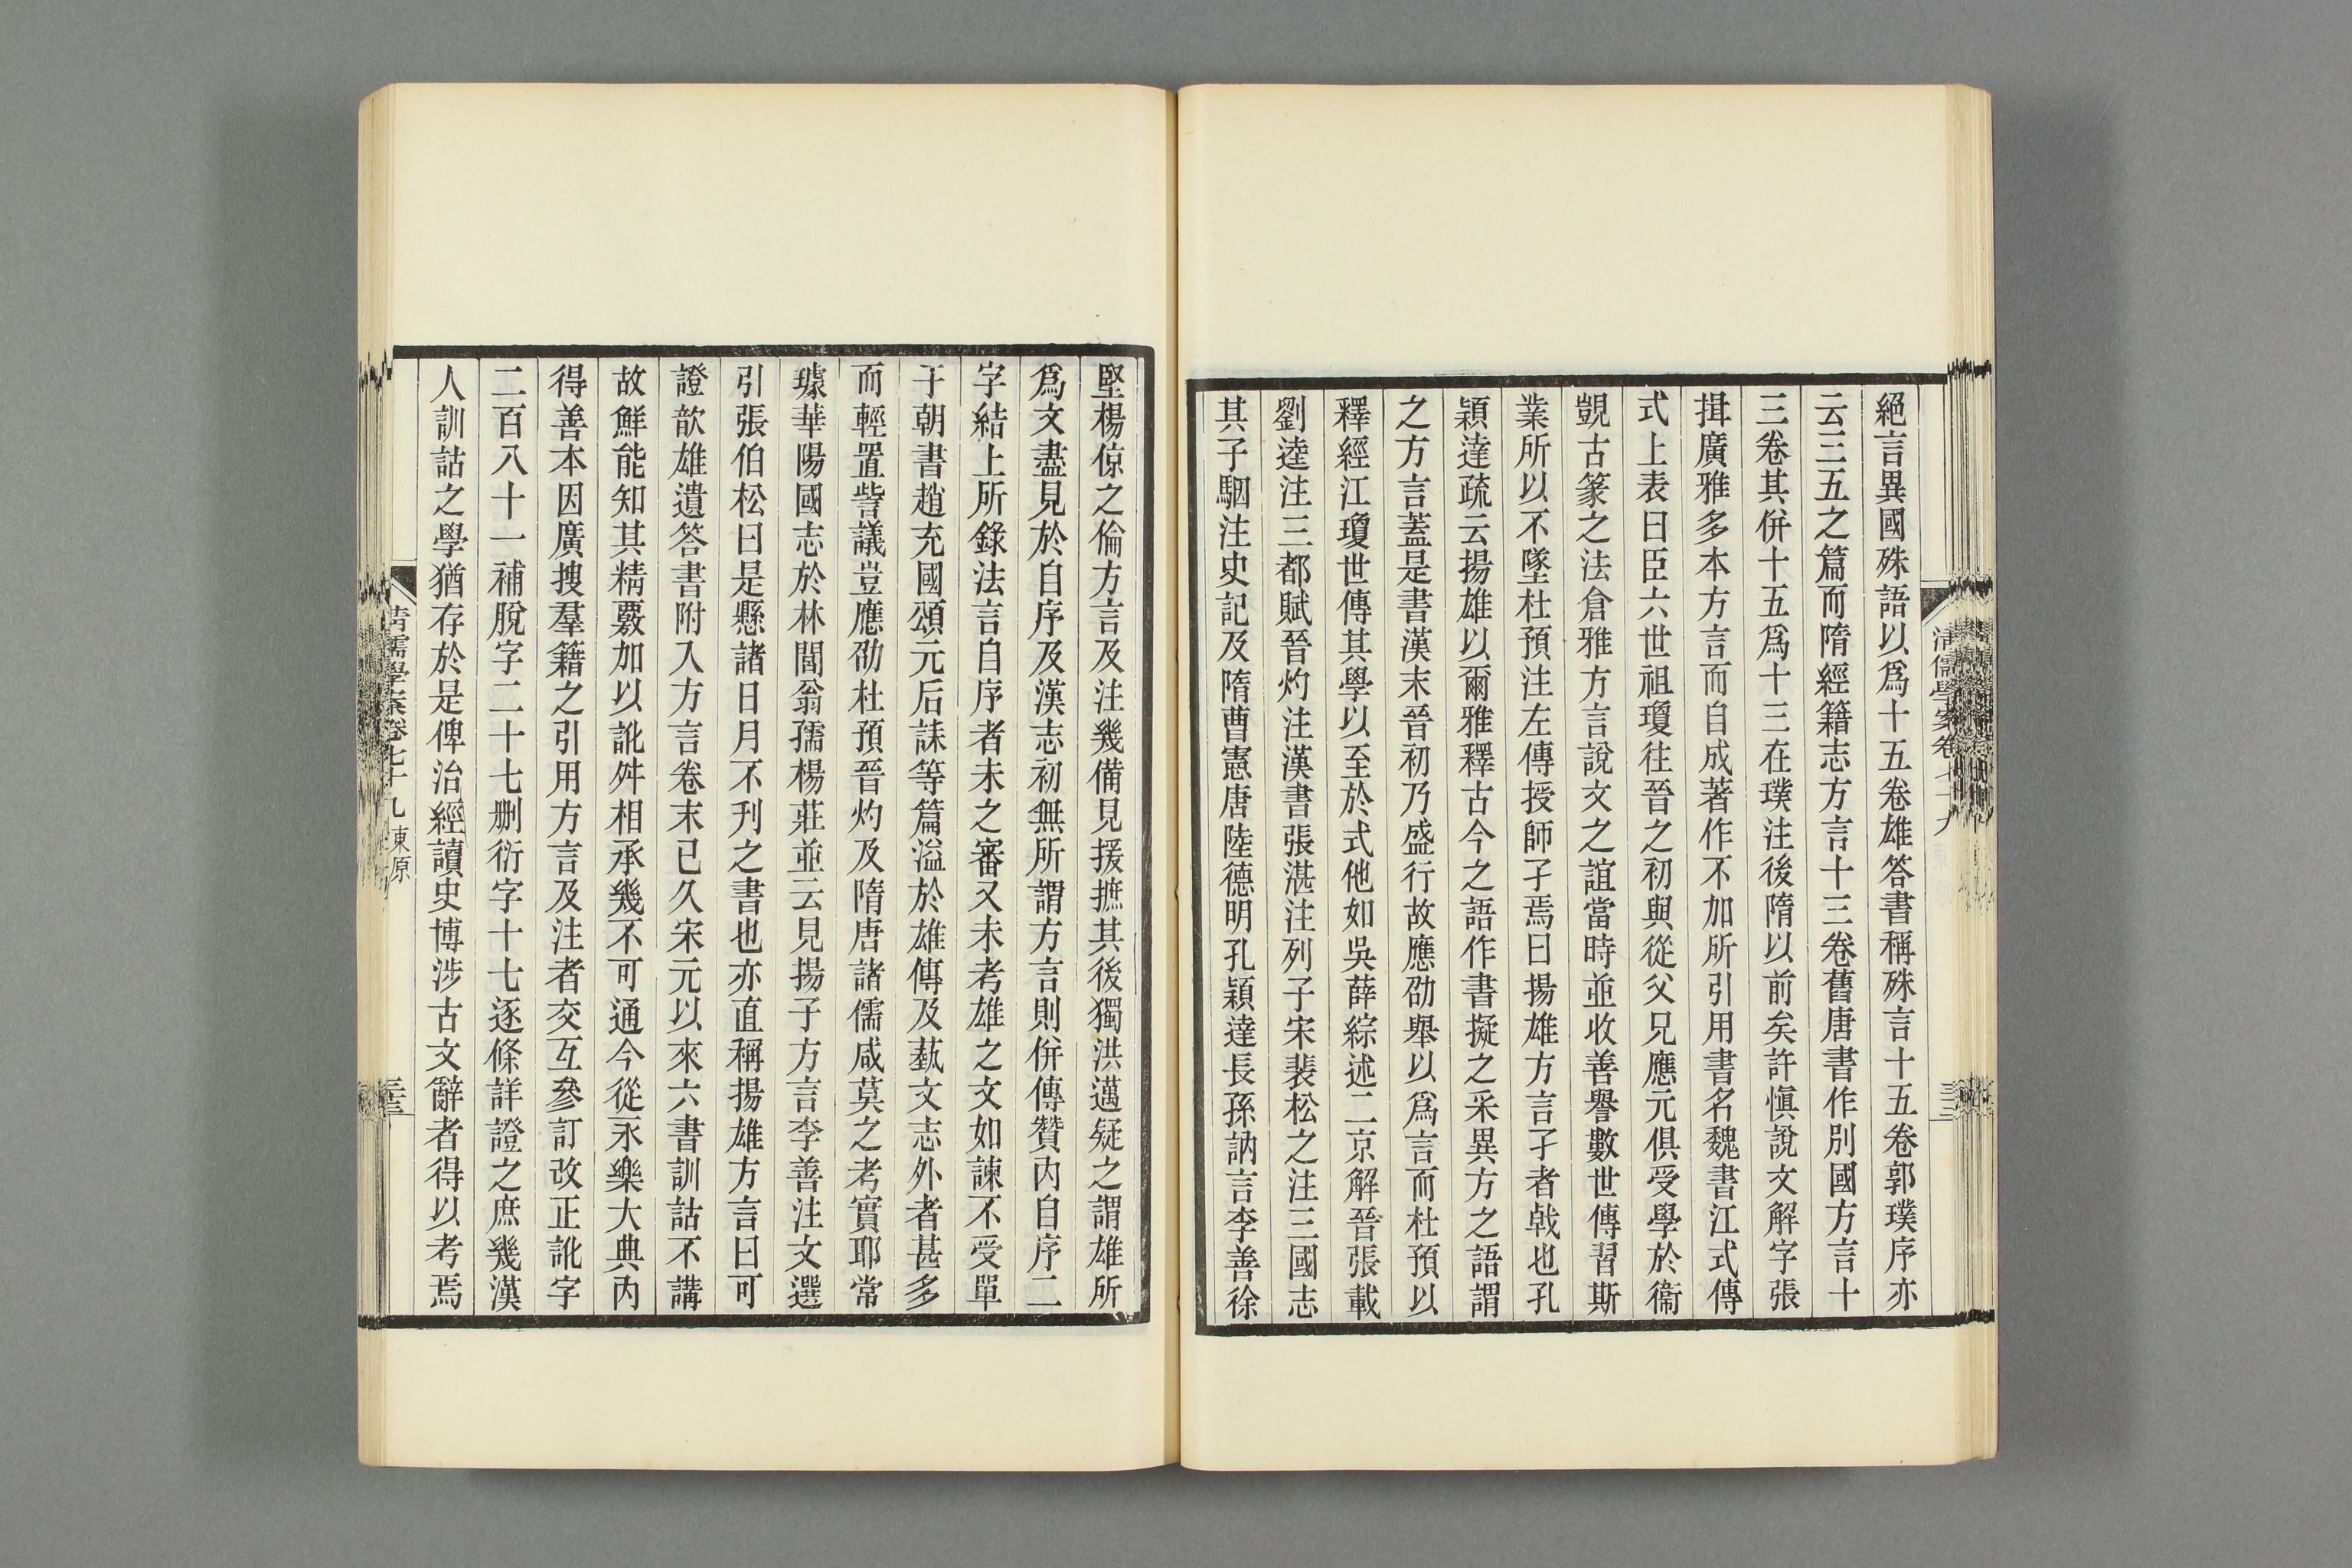 絕言異國殊語以爲十五卷雄答書稱殊言十五卷郭璞序亦
云三五之篇而隋經籍志方言十三卷舊唐書作別國方言十
三卷其併十五爲十三在璞注後隋以前矣許愼說文解字張
揖廣雅多本方言而自成著作不加所引用書名魏書江式傳
式上表曰臣六世祖瓊往晉之初與從父兄應元俱受學於衞
覬古篆之法倉雅方言說文之誼當時並收善譽數世傳習斯
業所以不墜杜預注左傳授師孑焉曰揚雄方言孑者戟也孔
穎達疏云揚雄以爾雅釋古今之語作書擬之采異方之語謂
之方言蓋是書漢末晉初乃盛行故應劭舉以爲言而杜預以
釋經江瓊世傳其學以至於式他如吳薛綜述二京解晉張載
劉逵注三都賦晉灼注漢書張湛注列子宋裴松之注三國志
其子駰注史記及隋曹憲唐陸德明孔穎達長孫訥言李善徐
清儒學案卷七十九
堅楊倞之倫方言及注幾備見援摭其後獨洪邁疑之謂雄所
爲文盡見於自序及漢志初無所謂方言則併傳贊內自序二
字結上所錄法言自序者未之審又未考雄之文如諫不受單
于朝書趙充國頌元后誄等篇溢於雄傳及蓺文志外者甚多
而輕置訾議豈應劭杜預晉灼及隋唐諸儒咸莫之考實耶常
璩華陽國志於林閭翁孺楊莊並云見揚子方言李善注文選
引張伯松曰是懸諸日月不刊之書也亦直稱揚雄方言曰可
證歆雄遺答書附入方言卷末已久宋元以來六書訓詁不講
故鮮能知其精覈加以訛舛相承幾不可通今從永樂大典內
得善本因廣搜羣籍之引用方言及注者交互參訂改正訛字
二百八十一補脫字二十七刪衍字十七逐條詳證之庶幾漢
人訓詁之學猶存於是俾治經讀史博涉古文辭者得以考焉
清儒學案卷七十九 東原